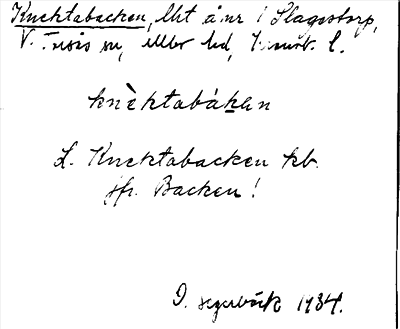 Knektabacken, lht å nr 1 Slagestorp,
V. Torsås sn, Allbo hd, Kronob. l.
knèktabákan
L. Knektabacken kb.
jfr. Backen!
D. Segerbäck 1934.